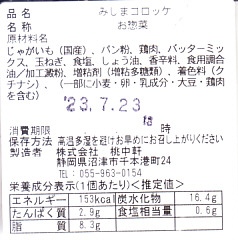 品名 みしまコロッケ
名称 お惣菜
原材料名
じゃがいも（国産）、パン粉、鶏肉、バッターミッ
クス、玉ねぎ、食塩、しょう油、香辛料、食用調合
油／加工澱粉、増粘剤（増粘多糖類）、着色料（ク
チナシ）、（一部に小麦・卵・乳成分・大豆・鶏肉
を含む）
'23.7.23
消費期限 時
保存方法 高温多湿を避けお早めにお召し上がりください
製造者 株式会社 桃中軒
静岡県沼津市千本港町24
TEL：055-963-0154
栄養成分表示（1個あたり）<推定値>
エネルギー 153kcal 炭水化物 16.4g
たんぱく質 2.9g 食塩相当量 0.6g
脂質 8.3g